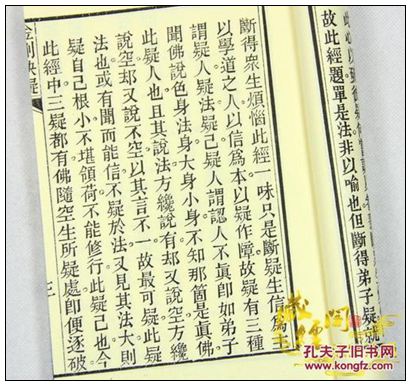 故此經題單是法非以喻也但斷得弟子疑就
斷得衆生煩惱此經一味只是斷疑生信為主
以學道之人以信為本以疑作障故疑有三種
謂疑人疑法疑己疑人謂認人不眞即如弟子
聞佛說色身法身大身小身不知那箇是眞佛
此疑人也且其說法方纔說有却又說空方纔
說空却又說不空以其言不一故最可疑此疑
法也或有聞而能信不疑於法又見其法大則
疑自己根小不堪領荷不能修行此疑己也今
此經中三疑都有佛隨空生所疑處即便逐破
金剛決疑
三
孔夫子旧书网
kongfz.com